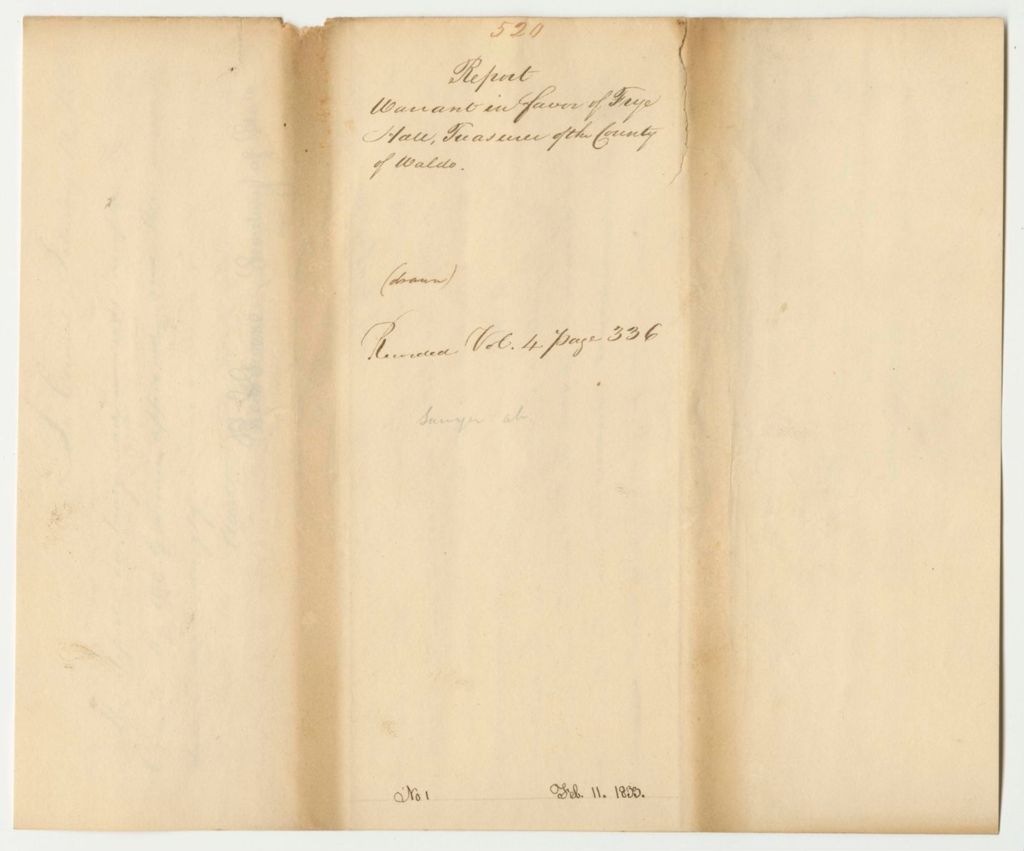 520
Report
Warrant in favor of Frye
Hall, Treasurer of the County
of Waldo.
(drawn)
Recorded Vol. 4 page 336
Sawyer
No 1
Feb. 11. 1833.